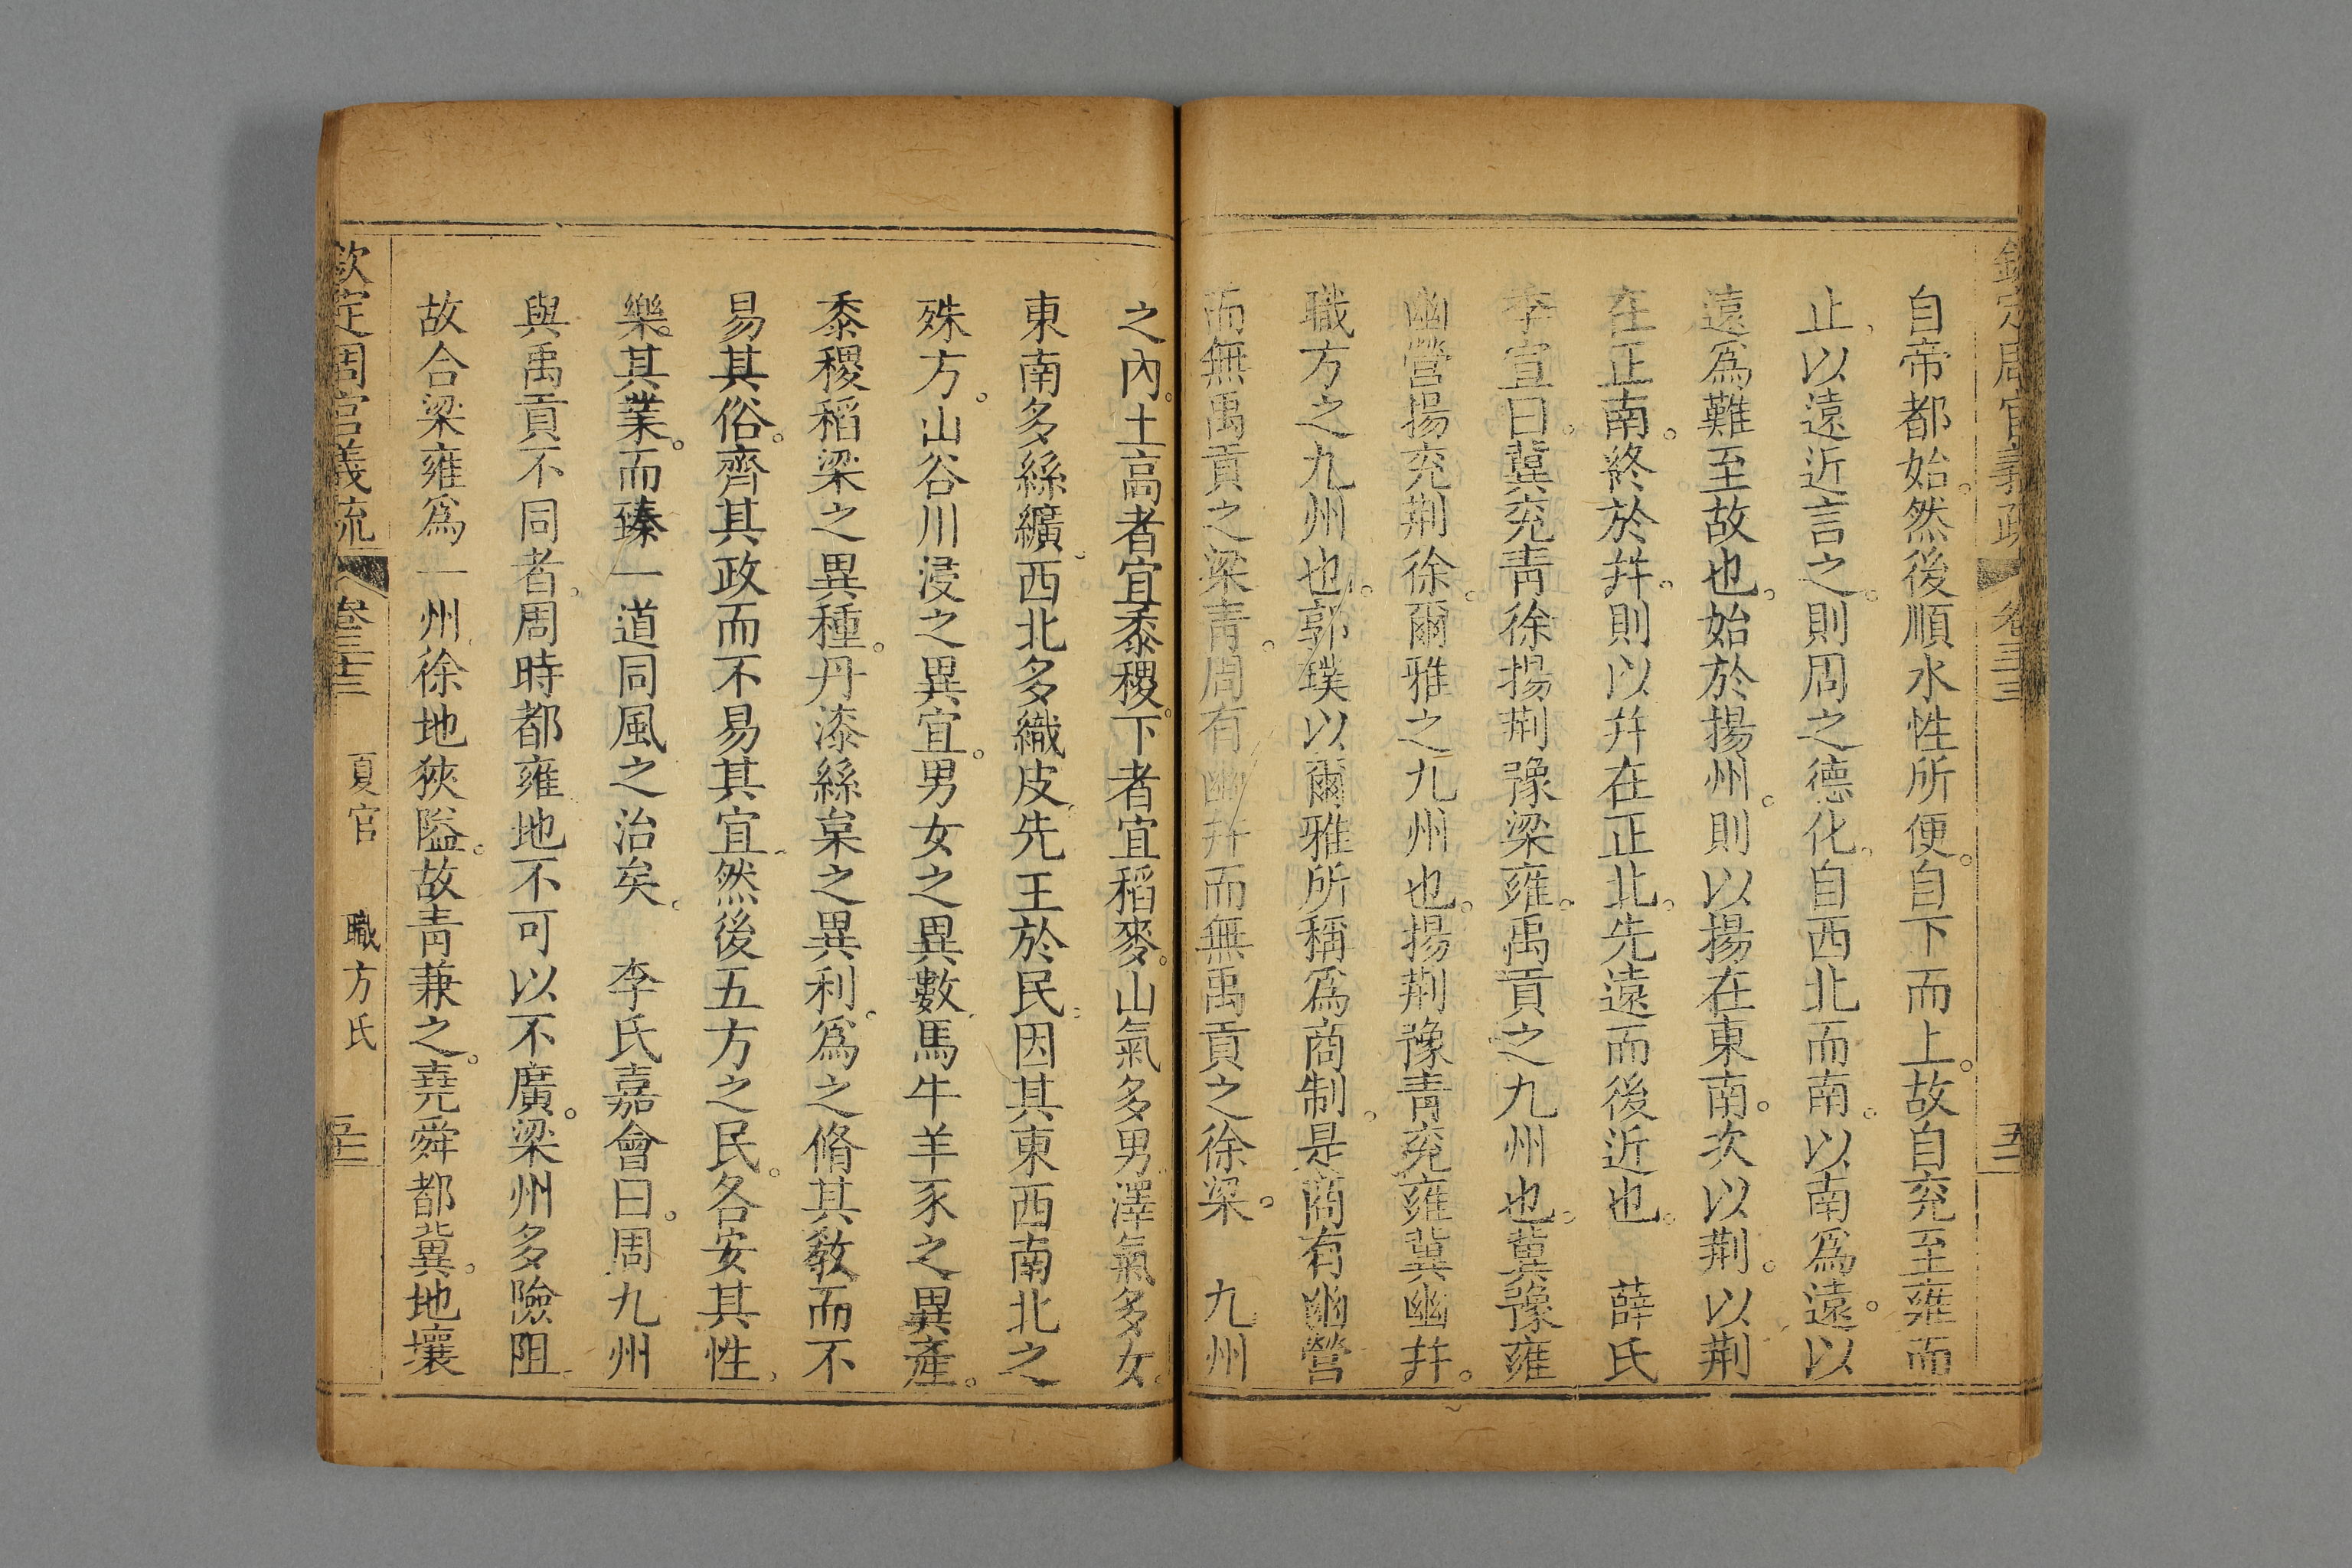 自帝都始。然後順水性所便。自下而上。故自兖至雍而
止、以遠近言之。則周之德化、自西北而南。以南爲遠。以
遠爲難至故也。始於揚州。則以揚在東南。次以荆。以荆
在正南。終於并。則以并在正北。先遠而後近也。 薛氏
季宣曰。冀兖靑徐揚荆豫梁雍。禹貢之九州也。冀豫雍
幽營揚兖荆徐。爾雅之九州也。揚荆豫靑兖雍冀幽并。
職方之九州也。郭璞以爾雅所稱爲商制。是商有幽營
而無禹貢之梁靑。周有幽并而無禹貢之徐梁。 九州
之內。土高者宜黍稷。下者宜稻麥。山氣多男澤氣多女。
東南多絲纊、西北多織皮、先王於民、因其東西南北之
殊方。山谷川浸之異宜。男女之異數、馬牛羊豕之異產。
黍稷稻梁之異種。丹漆絲枲之異利。爲之脩其敎而不
易其俗。齊其政而不易其宜、然後五方之民。各安其性、
樂其業。而臻一道同風之治矣。 李氏嘉會曰。周九州
與禹貢不同者。周時都雍、地不可以不廣。梁州多險阻、
故合梁雍爲一州、徐地狹隘。故靑兼之。堯舜都冀。地壤
欽定周官義疏 卷三十三 夏官 職方氏 五三